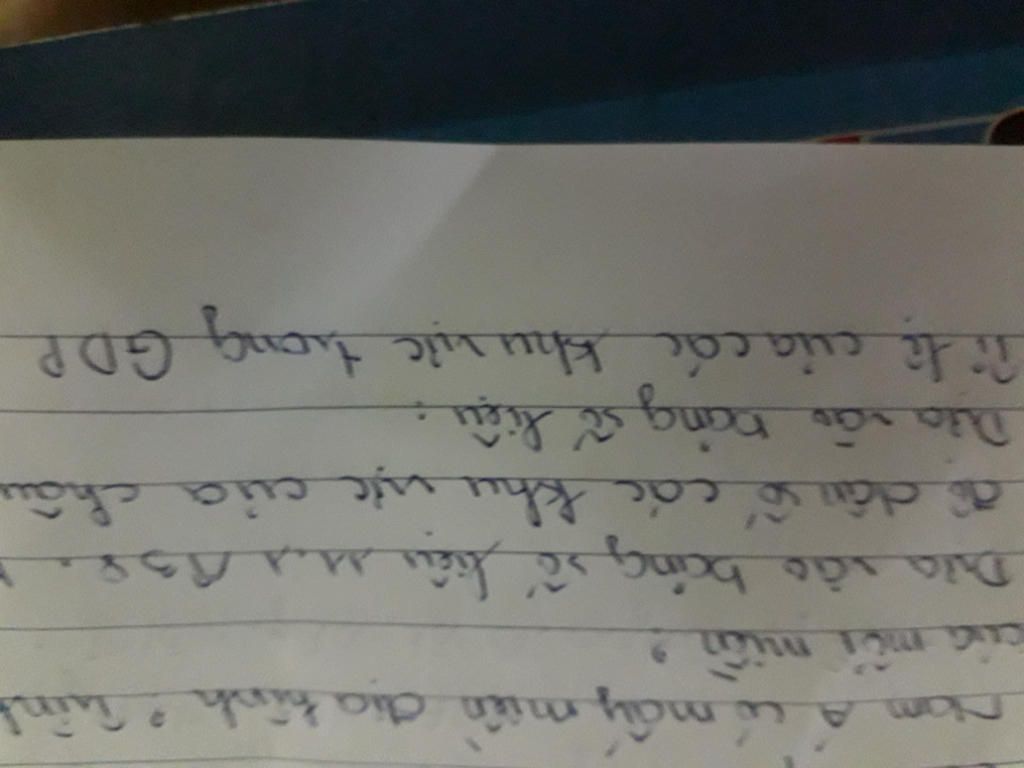 Nam Á có mấy miền địa hình? Trình
của mỗi miền?
Dựa vào bảng số liệu 11.1
đồ dân số các khu vực của châu
Dựa vào bảng số liệu:
Tỉ lệ của các khu vực trong GDP